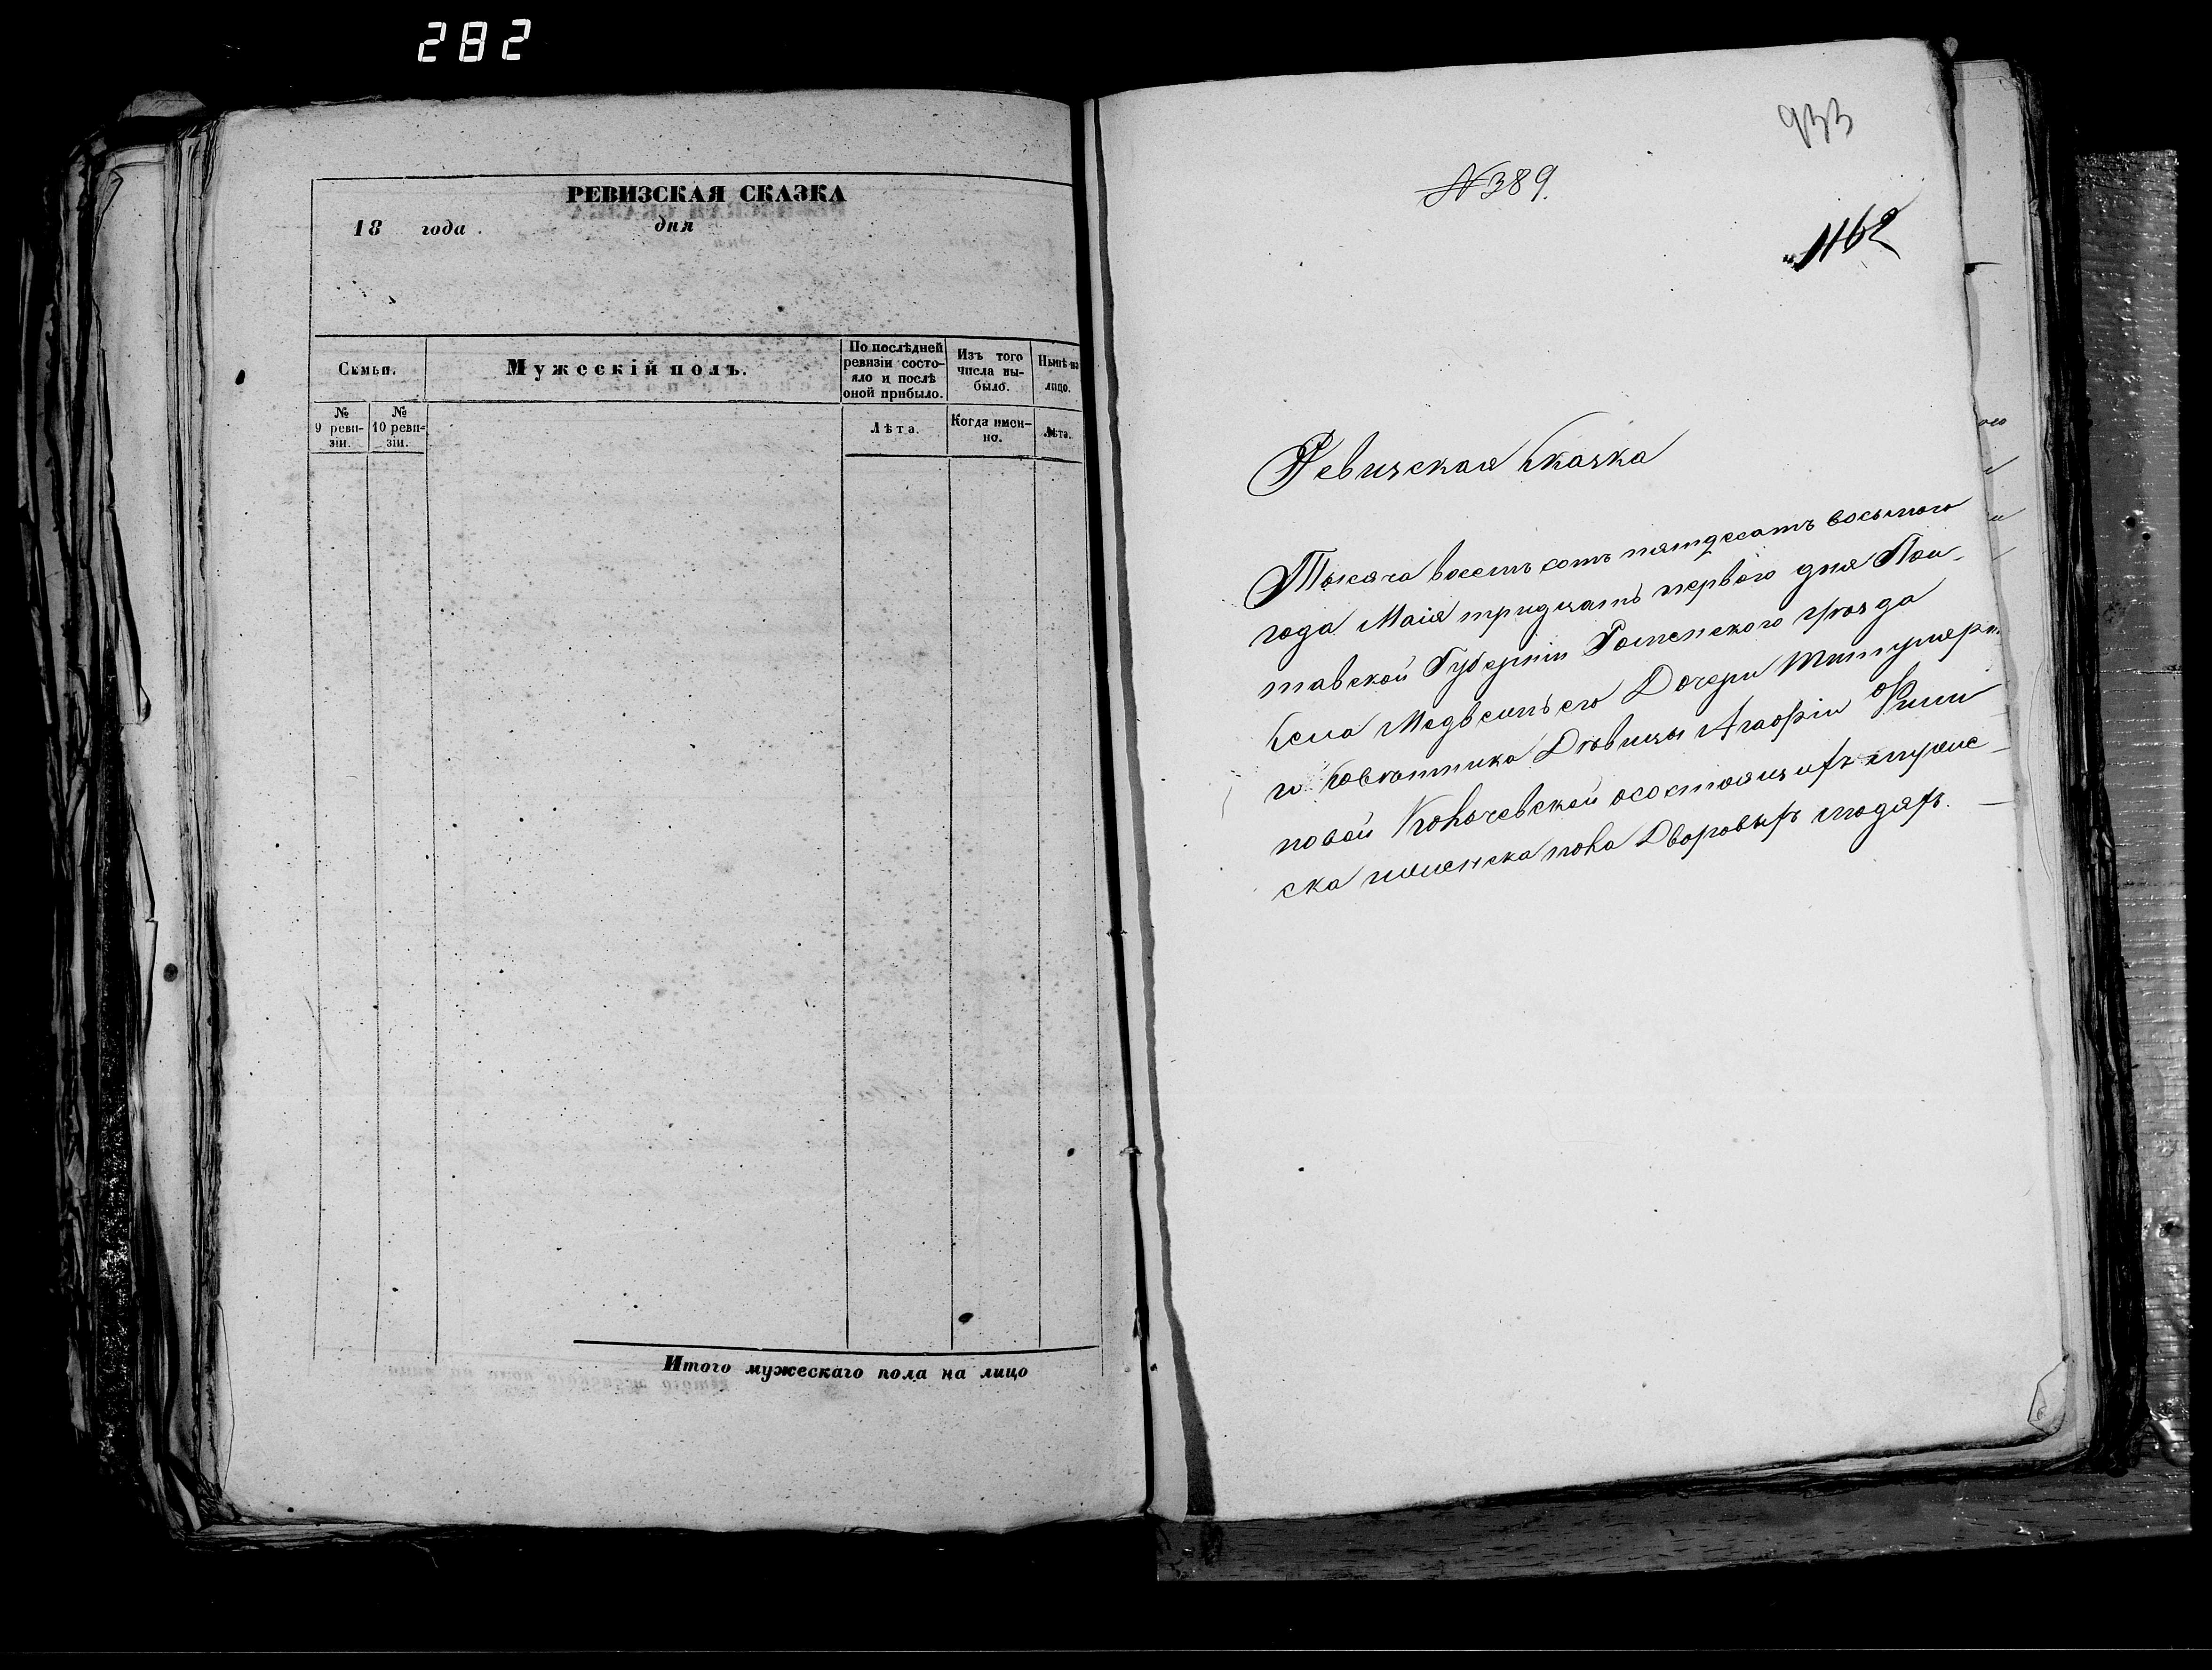 282
РЕВИЗСКАЯ СКАЗКА
18 года дня
Семьи.
Мужескій полъ.
По послѣдней ревизіи состояло и послѣ оной прибыло.
Изъ того числа выбыло.
Нынѣ на лицо.
№ 9 ревизіи.
№ 10 ревизіи.
Лѣта.
Когда именно.
Лѣта.
Итого мужескаго пола на лицо
933
№389.
1162
Ревизская Сказка
Тысяча восемь сотъ пятдесятъ восьмого
года Маія тридцать первого дня Пол-
тавской Губерніи Роменского уѣзда
Села Медвежьего Дочери Титулярн.
го Совѣтника Дѣвицы Агафіи Фили
повой осостоящихъ мужес
ска иженска пола Дворовыхъ людяхъ.